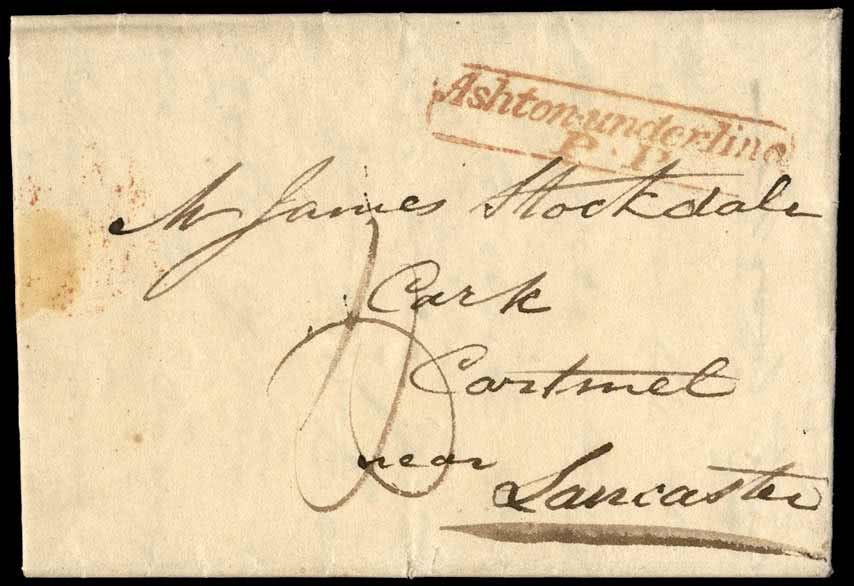 Ashton-underline
P.P.
Mr James Stockdale
Cark
Cartmel
near
Lancaster